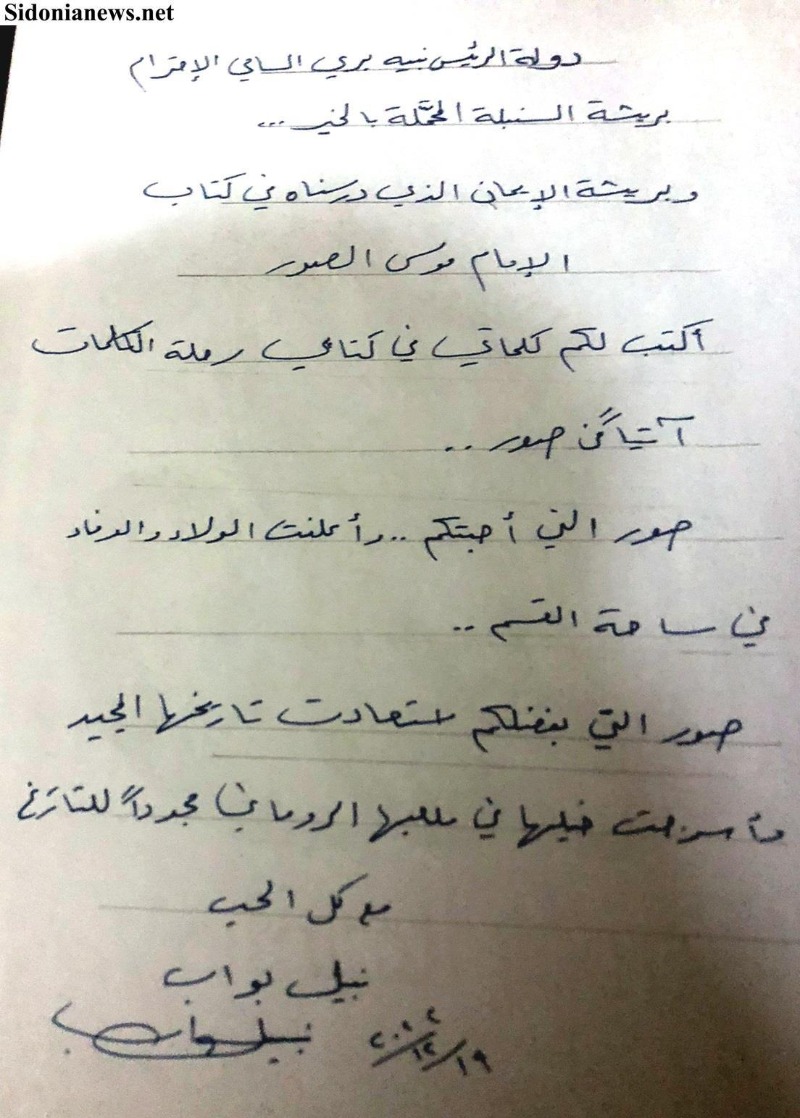 Sidonianews.net
دولة الرئيس نبيه بري السامي الإحترام
بريشة السنبلة المحمَّلة بالخير ...
وبريشة الإيمان الذي درسناه في كتاب
الإمام موسى الصدر
أكتب لكم كلماتي في كتابي رملة الكلمات
آتياً من صور ..
صور التي أحبتكم .. وأعلنت الولاء والوفاء
في ساحة القسم ..
صور التي بفضلكم استعادت تاريخها المجيد
وأسرجت خيلها في ملعبها الروماني مجدداً للتاريخ
مع كل الحب
نبيل بواب
نبيل بواب ١٩/١٢/